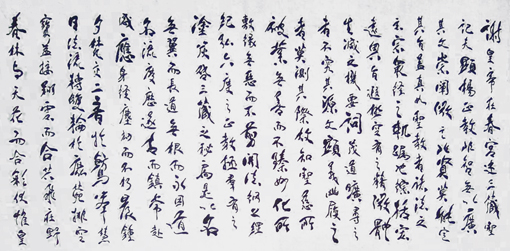 謝皇帝在春宮述三藏聖
記夫顯揚正教非智無以廣
其文崇闡微言非賢莫能定
其旨蓋真如聖教者諸法之
玄宗眾經之軌躅也綜括宏
遠奧旨遐深極空有之精微體
生滅之機要詞茂道曠尋之
者不究其源文顯義幽履之
者莫測其際故知聖慈所
被業無善而不臻妙化所
敷緣無惡而不翦開法網之綱
紀弘六度之正教拯群有之
塗炭啟三藏之秘扃是以名
無翼而長道無根而永固道
名流慶歷遂古而鎮常赴
感應身經塵劫而不朽晨鐘
夕梵交二音於鷲峰慧
日法流轉雙輪於鹿菀排空
寶蓋接翔雲而共飛莊野
春林與天花而合彩伏惟皇